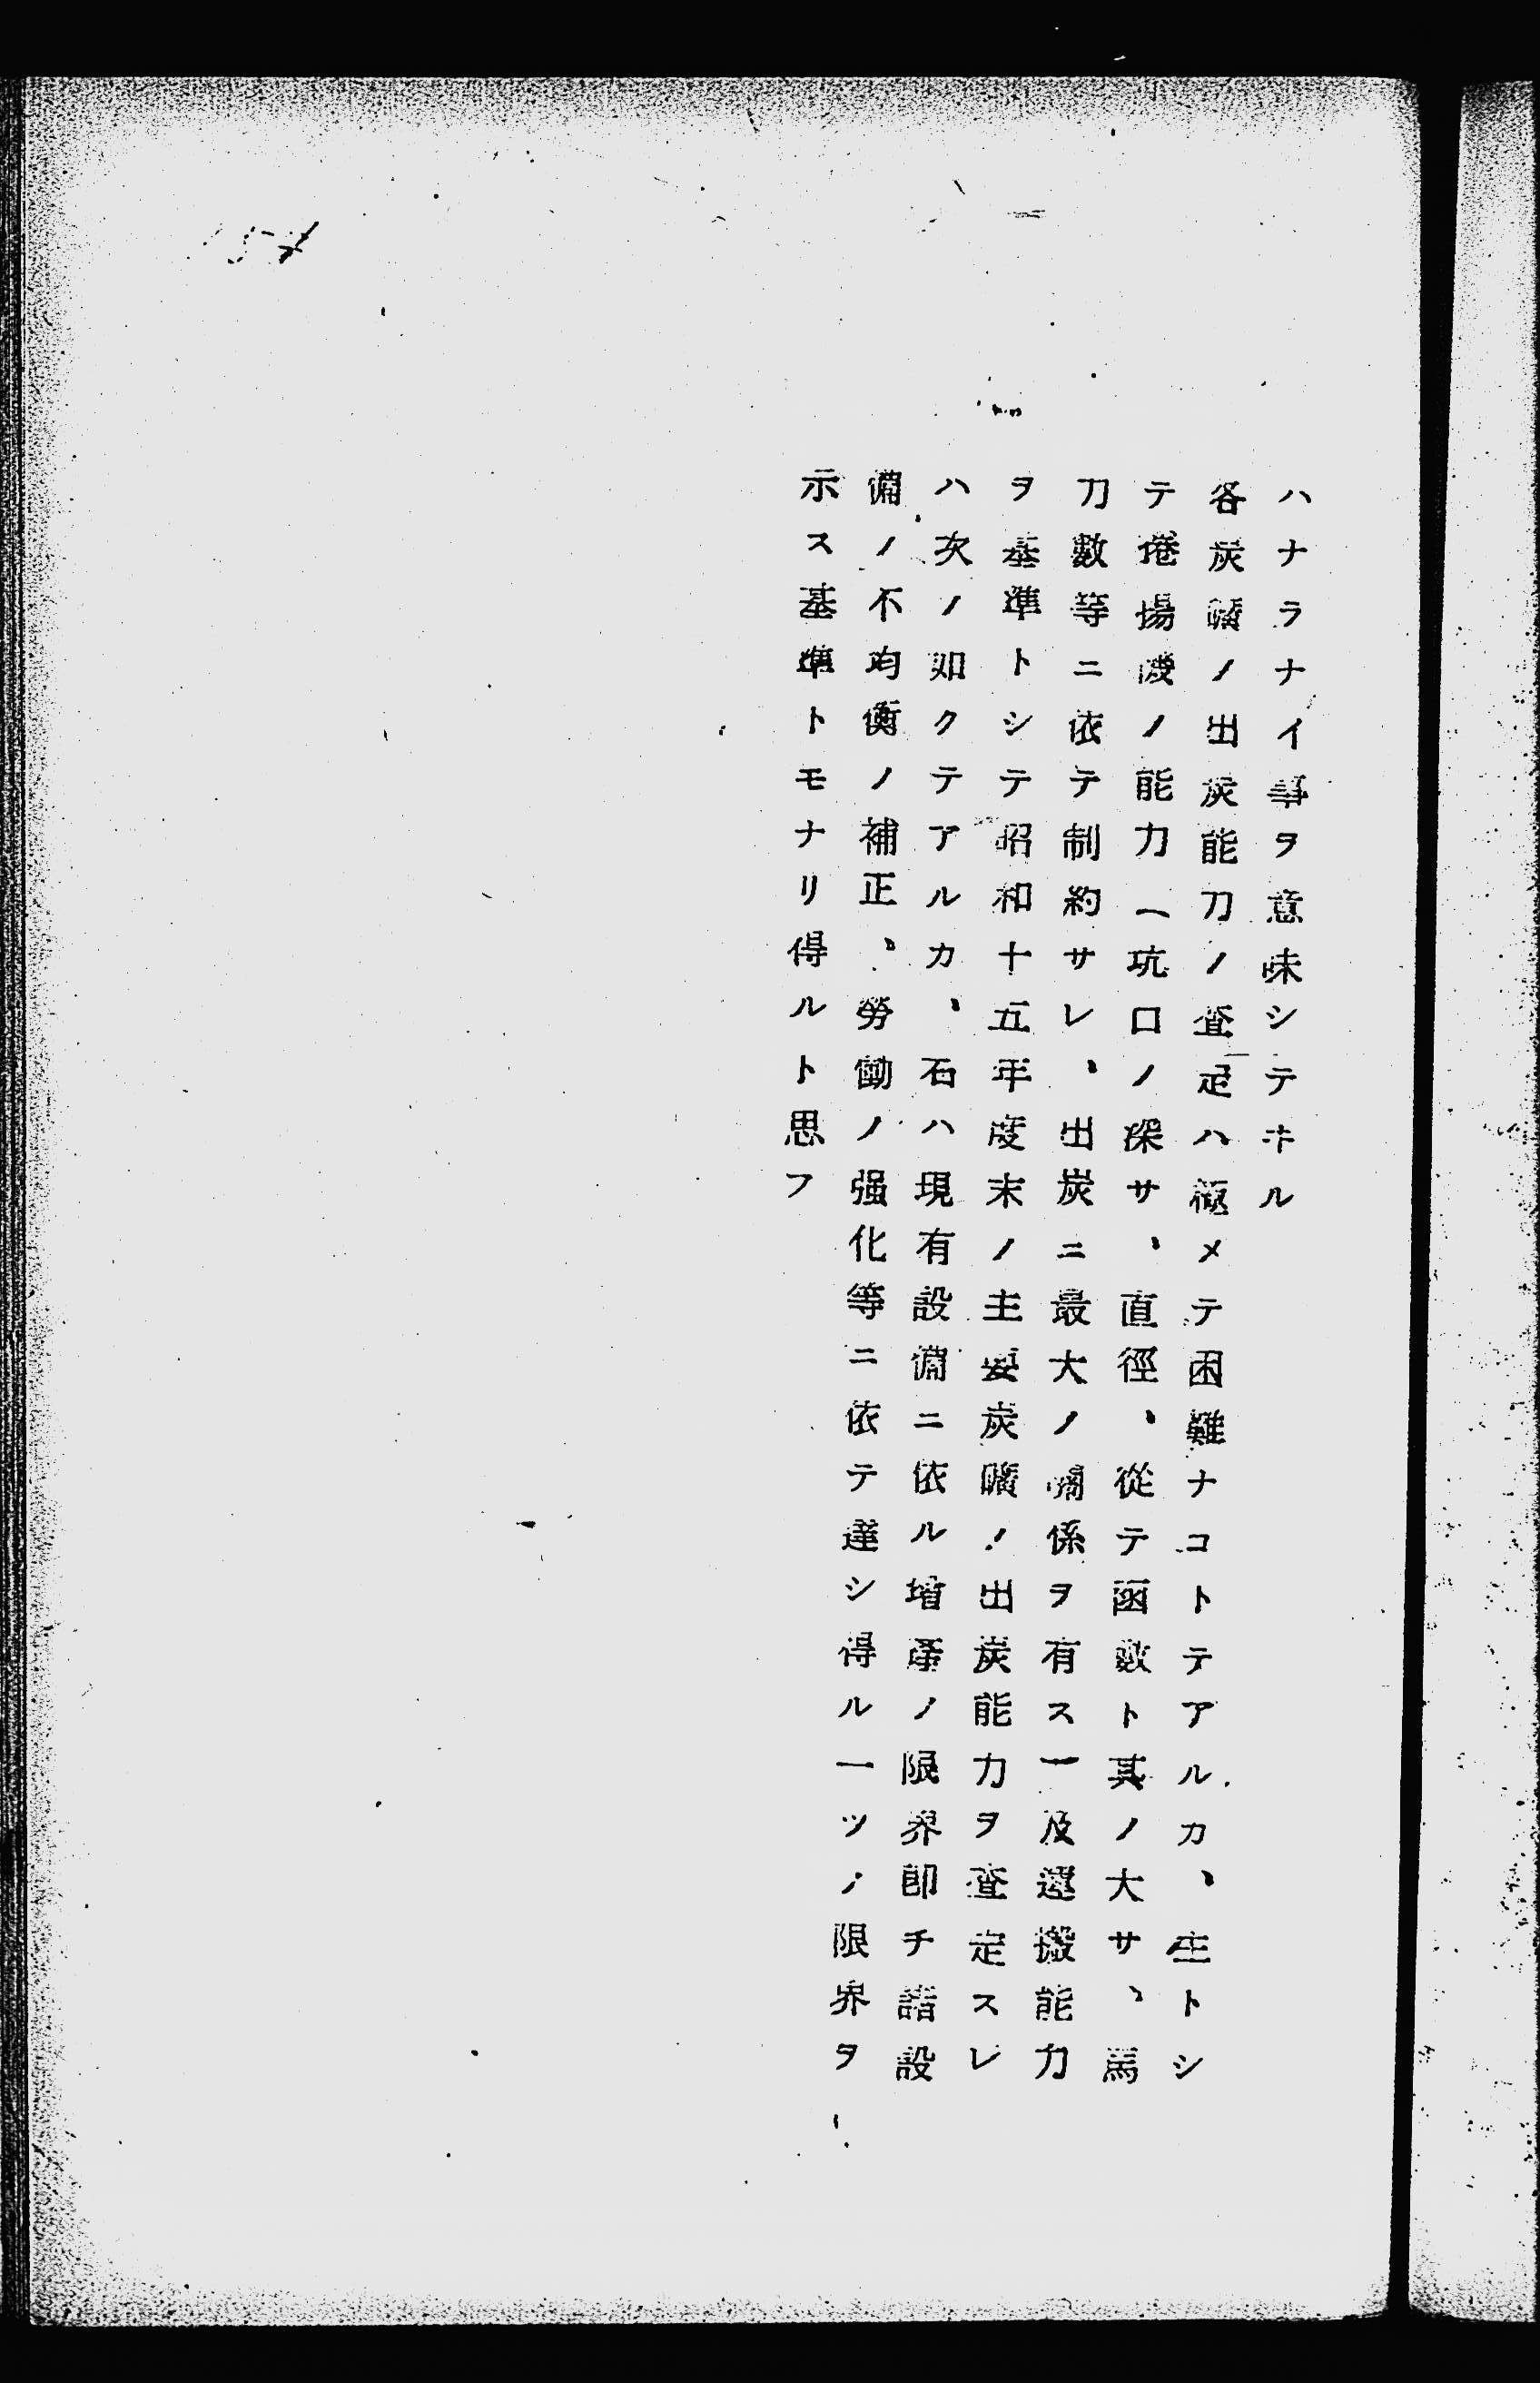 ハナラナイ事ヲ意味シテヰル
各炭礦ノ出炭能力ノ査定ハ極メテ困難ナコトテアルカ、主トシ
テ捲揚機ノ能力（坑口ノ深サ、直徑、從テ函数ト其ノ大サ、馬
力數等ニ依テ制約サレ、出炭ニ最大ノ關係ヲ有ス）及運搬能力
ヲ基準トシテ昭和十五年度末ノ主要炭礦ノ出炭能力ヲ査定スレ
ハ次ノ如クテアルカ、右ハ現有設備ニ依ル增產ノ限界卽チ諸設
備ノ不均衡ノ補正、勞働ノ强化等ニ依テ達シ得ル一ツノ限界ヲ
示ス基準トモナリ得ルト思フ